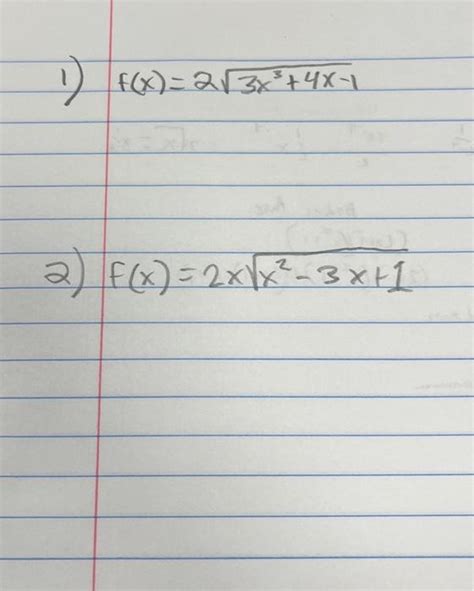 1) f(x)=2√(3x³+4x-1)
2) f(x)=2x√(x²-3x+1)